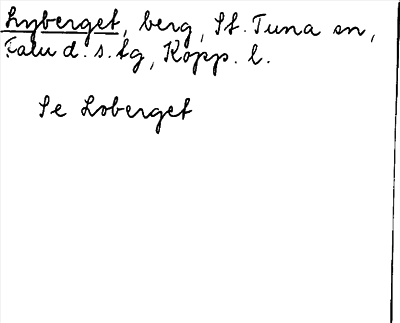 Lyberget, berg, St. Tuna sn,
Falu d. s. tg, Kopp. l.
Se Loberget